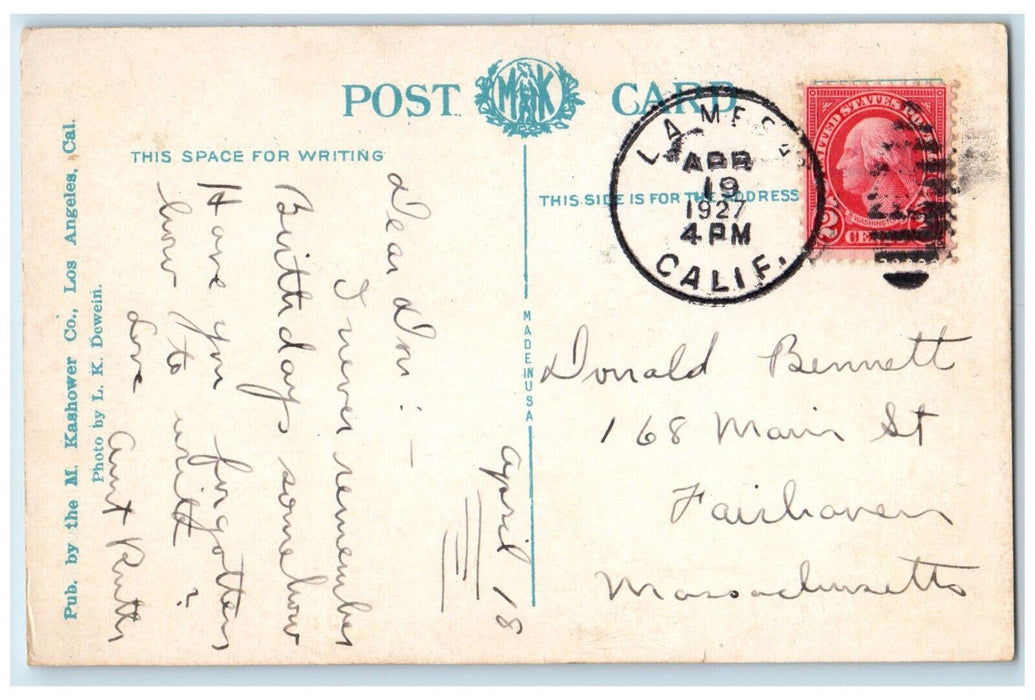 POST MK CARD
THIS SPACE FOR WRITING
THIS SIDE IS FOR THE ADDRESS
LA MESA
APR
19
1927
4 PM
CALIF.
UNITED STATES POSTAGE
WASHINGTON
2 CENTS 2
MADE IN USA
Donald Bennett
168 Main St
Fairhaven
Massachusetts
April 18
Dear Don: —
I never remember
Birthdays somehow
Have you forgotten
how to write?
Love
Aunt Ruth
Photo by L. K. Dewein.
Pub. by the M. Kashower Co., Los Angeles, Cal.